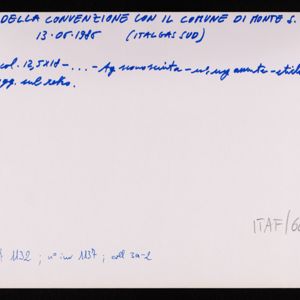 DELLA CONVENZIONE CON IL COMUNE DI MONTE S.
13.05.1985 (ITALGAS SUD)
col. 12,5x18 - ... - Ag sconosciuta -
sul retro.
ITAF/
1132 ; n° inv 1137 ; coll 3a-2